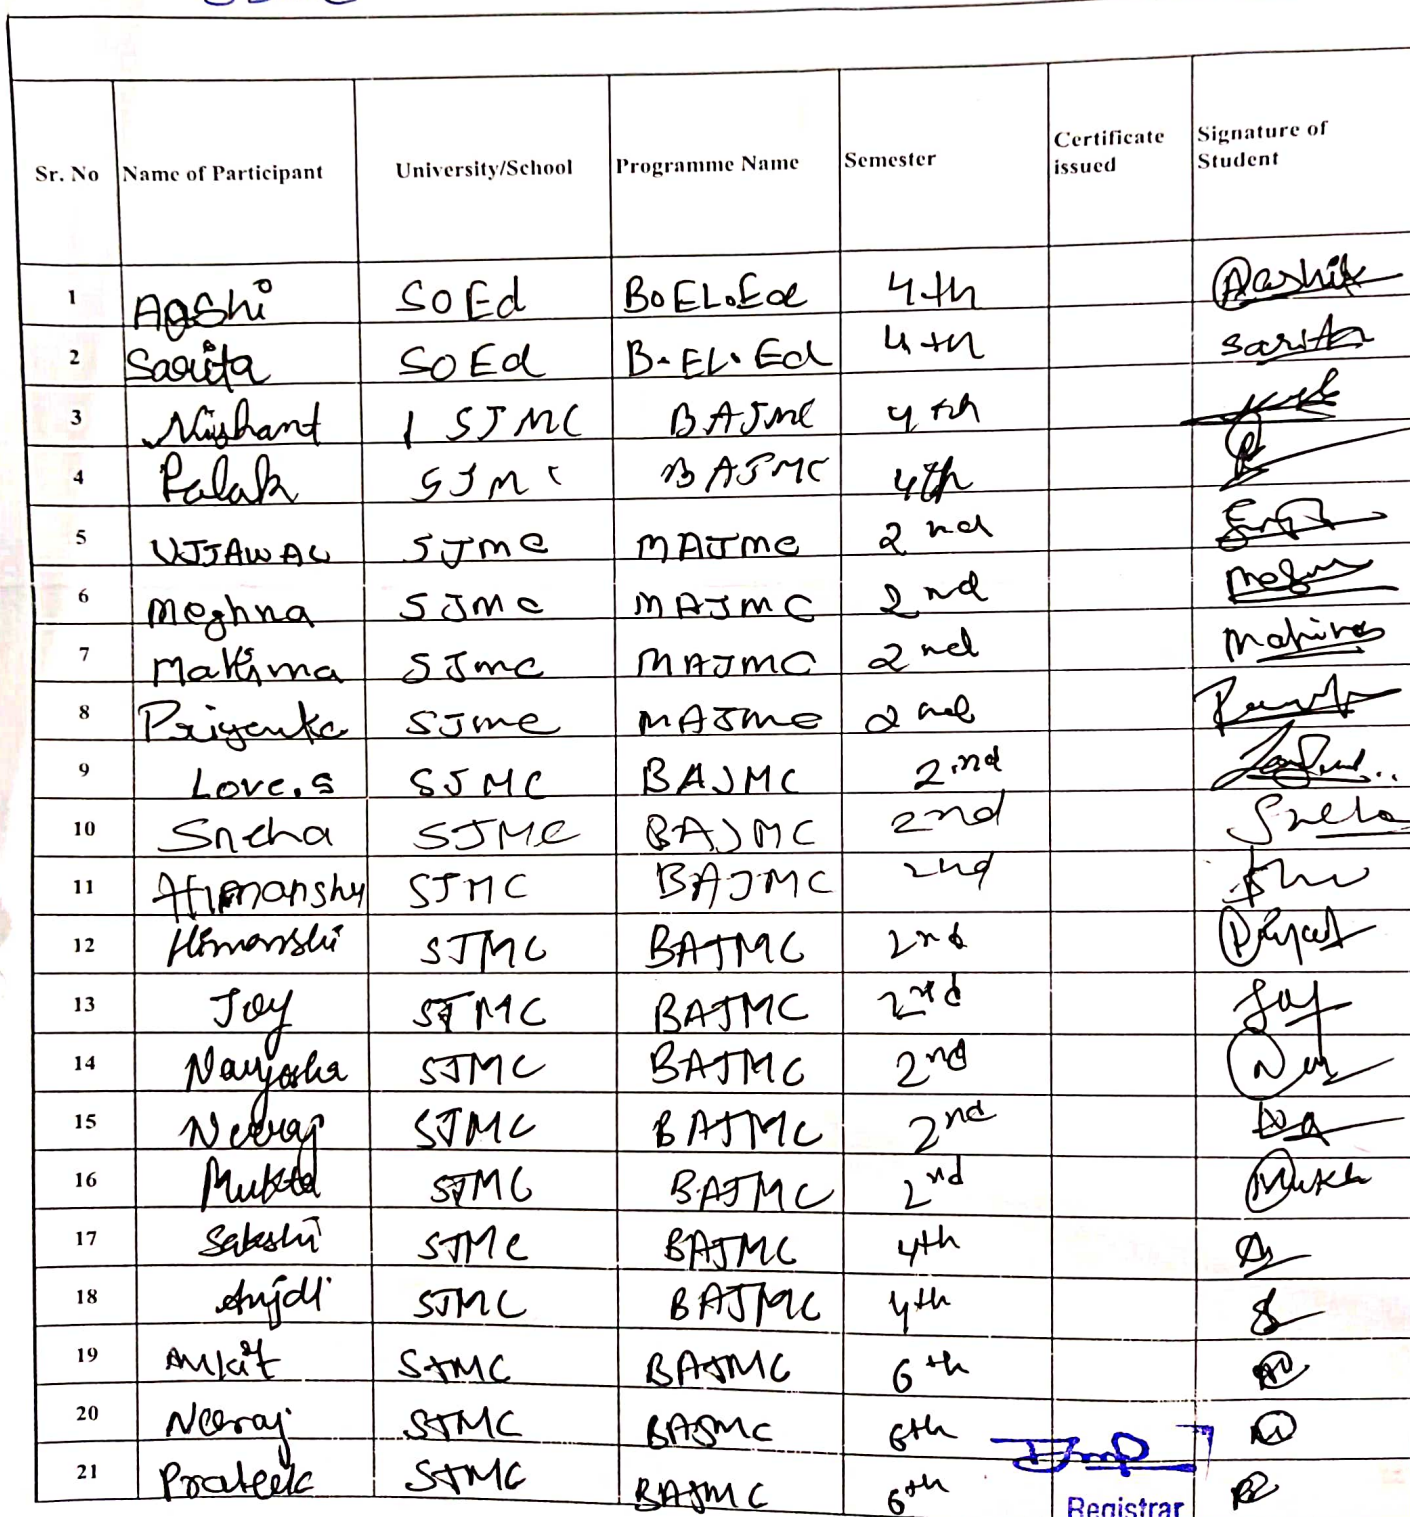 Sr. No Name of Participant University/School Programme Name Semester Certificate issued Signature of Student
1 Aashi SOEd B.EL.Ed 4th Aashi
2 Sarita SOEd B.EL.Ed 4th Sarita
3 Nishant SJMC BAJMC 4th
4 Palak SJMC BAJMC 4th
5 UJJAWAL SJMC MAJMC 2nd
6 Meghna SJMC MAJMC 2nd
7 Mahima SJMC MAJMC 2nd Mahima
8 Priyanka SJMC MAJMC 2nd
9 Love.S SJMC BAJMC 2nd
10 Sneha SJMC BAJMC 2nd Sneha
11 Himanshu SJMC BAJMC 2nd
12 Himanshi SJMC BAJMC 2nd
13 Joy SJMC BAJMC 2nd Joy
14 SJMC BAJMC 2nd
15 Neeraj SJMC BAJMC 2nd
16 Mukta SJMC BAJMC 2nd
17 Sakshi SJMC BAJMC 4th
18 Anjali SJMC BAJMC 4th
19 Ankit SJMC BAJMC 6th
20 Neeraj SJMC BAJMC 6th
21 Prateek SJMC BAJMC 6th
Registrar